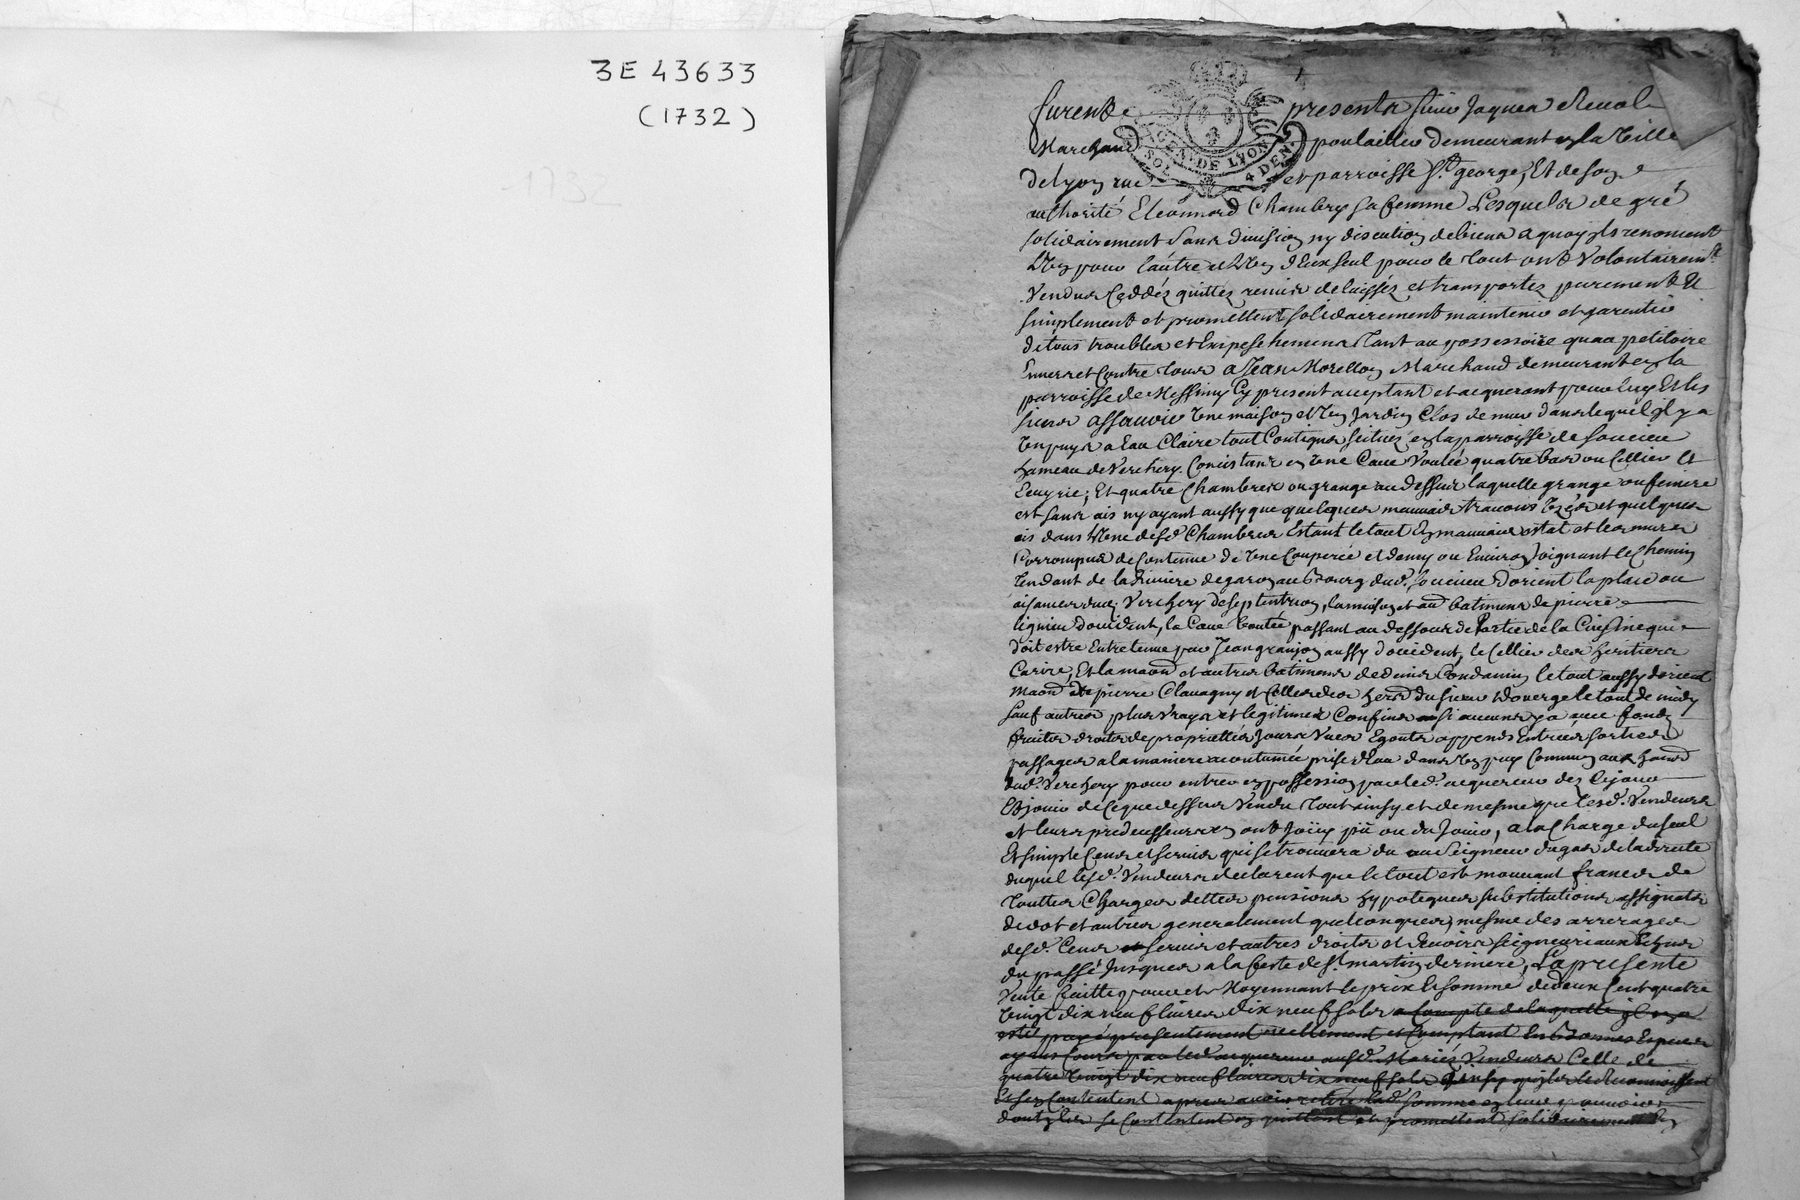 3E 43633
(1732)
furent presents sieur Jaques Reual
Marchand poulailler demeurant en la Ville
de lyon rue et parroisse St. george, Et de son
authorité Eleonnord Chambry sa femme Lesquels de gré
solidairement sans diuision ny discution de biens a quoy ils renoncent
L'un pour l'autre et L'un d'Eux seul pour le tout ont Volontairemt.
Vendus Ceddés quittés remis delaissés et transportés purement Et
simplement et promettent solidairement maintenir et garentir
de tous troubles et Empeschemens tant au possessoire quau petitoire
Enuers et Contre tous a Jean Morellon Marchand demeurant en la
parroisse de Messimy Cy present acceptant et acquerant pour luy Et les
siens assauoir Une maison et Un Jardin Clos de murs dans lequel il y a
Un puys a Eau Claire tout Contigus scitués en la parroisse de soucieu
hameau de Verchery. Consistant en Une Caue Voutée quatre bas ou Cellier Et
Ecuyrie; Et quatre Chambres ou grange au dessus laquelle grange ou feniere
est sans ais ny ayant aussy que quelques mauuais trauons Uzés et quelques
ais dans Une desd. Chambres Estant le tout En mauuais estat et les murs
Corrompus de Contenue de Une Couperée et demy ou Enuiron Joignant le Chemin
tendant de la Riuiere de garon au Bourg dud. soucieu d'orient la place ou
aisances dud. Verchery de septentrion, la maison et au batimens de pierre
lignieu d'occident, la Caue Voutée passant au dessous de Partie de la Cuisine qui
doit estre Entretenue par Jean granjon aussy d'occident, le Cellier des heritiers
Carire; Et la maon et autres batimens de denis Condamin le tout aussy d'orient
maon de pierre Clauagny et Celles des hers du sieur douerge le tout de midy
sauf autres plus Vrays et legitimes Confins si aucuns y a auec fonds
fruits droits de proprietté Jours Vues Egouts appends Entrées sorties
passages a la maniere acoutumée prise d'Eau dans Un puy Commun aux
dud. Verchery pour entrer en possession par led. acquereur dez Cejour
Et jouir de Ce que dessus Vendu tout ainsy et de mesme que lesd. Vendeurs
et leurs predecesseurs en ont Joüy pû ou du Jouir, a la Charge du seul
Et simple Cens et seruis qui se trouuera du au seigneur de la directe
duquel lesd. Vendeurs declarent que le tout est mouuant francs de
touttes Charges dettes pensions hypoteques substitutions assignats
de dot et autres generalement quelconques, mesme des arrerages
desd. Cens seruis et autres droits et deuoirs seigneuriaux Echus
du passé Jusques a la feste de St. martin derniere, La presente
Vente faitte pour et Moyennant le prix Et somme de deux Cent quatre
Vingt dix neuf liures dix neuf sols a Compte de laquelle il en a
esté payé presentement reellement et Comptant En bonnes Especes
ayans Cours par led. acquereur ausd. Mariés Vendeurs Celle de
quatre Vingt dix neuf liures dix neuf sols ainsy qu'ils le reconnoissent
Et s'en Contentent apres auoir retiré lad. somme en leur pouuoir
dont ils se Contentent en quittent et promettent solidairement